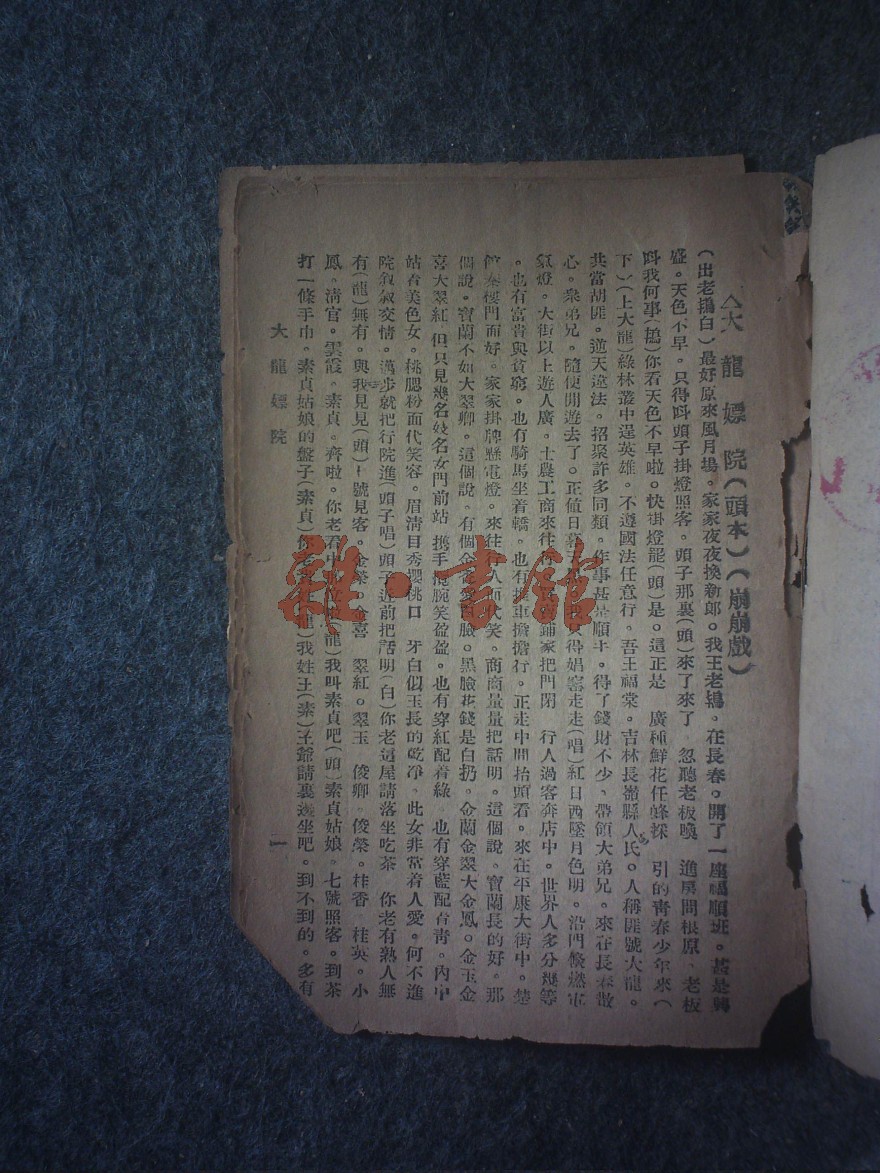 大龍嫖院(頭本)(崩崩戲)
(出老鴇白)最好原來風月場。家家夜夜換新郎。我王老鴇。在長春。開了一座福順班。甚是興
盛。天色不早。只得呌頭子掛燈照客。頭子那裏(頭)來了來了 忽聽老板喚 進房問根原、老板
呌我何事(鴇)你看天色不早啦。快掛燈罷(頭)是。這正是 廣種鮮花任蜂採 引的靑春少年來(
下)(上大龍)綠林叢中逞英雄。不遵國法任意行。吾王福棠。吉林長嶺縣人氏。人稱匪號大龍。
共當胡匪。逆天違法。招聚許多同類。作事甚是順手。得了錢財不少、帶領大弟兄。來在長春散
心。衆弟兄。隨便閒遊去了。正値日暮 得娼窰走走(唱)紅日西墜月色明。沿門
氣燈。大街以上遊人廣。士農工商來往 鋪家把門閉 行人過客奔店中。世界人多分幾等
。也有富貴與貧窮。也有騎馬坐着轎。也有推車擔擔行。正走中間抬頭看。來在平康大街中。楚
館秦樓門面好。家家掛牌懸電燈。來往 人 笑。商商量量把話明。這個說。寶蘭長的好。那
個說。寶蘭不如大翠卿。這個說。有個金 臉。黑臉花錢是白扔。金蘭金翠大金鳳。金玉金
喜大翠紅 但只見幾名妓名女門前站 携手 腕笑盈盈。也有穿紅配着綠 也有穿藍配着靑。內中
站着美色女。桃腮粉面代笑容。眉淸目秀櫻桃口 牙白似玉長的乾凈。此女非常着人愛。何不進
院叙叙交情。邁步就把行院進(頭子唱)頭子近前把話明(白)你老這屋請落坐吃茶 你老有熟人無
有(龍)無有。與我見見(頭)十號見客。金榮。金喜 翠紅。翠玉 俊卿。俊榮。桂香 桂英。小
鳳。淸官。雲霞。素貞。齊啦。你老看中 (龍)我叫素貞吧(頭)素貞姑娘。七號照客。到茶
打一條手巾。素貞姑娘的盤子(素貞)你老 (龍)我姓王(素)王爺請裏邊坐吧。到不到的。多有
大龍嫖院
一
雜·書館